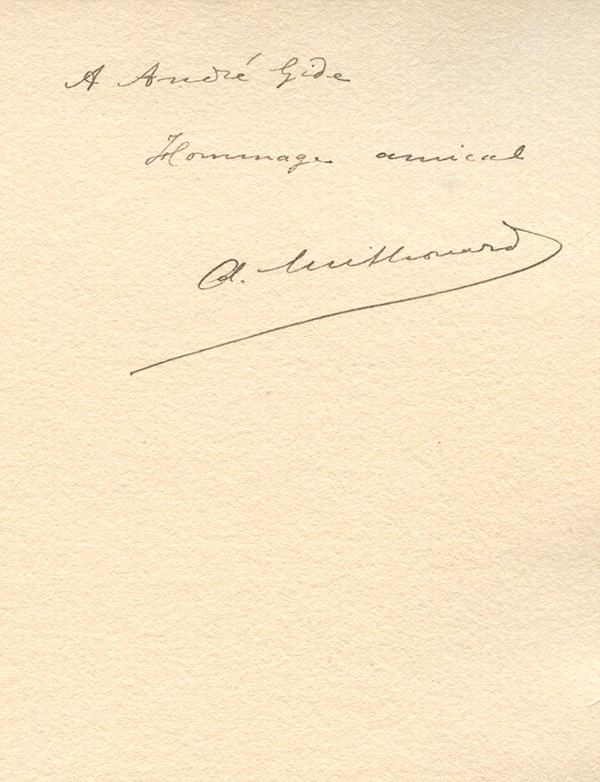 A André Gide
Hommage amical
A. Mithouard